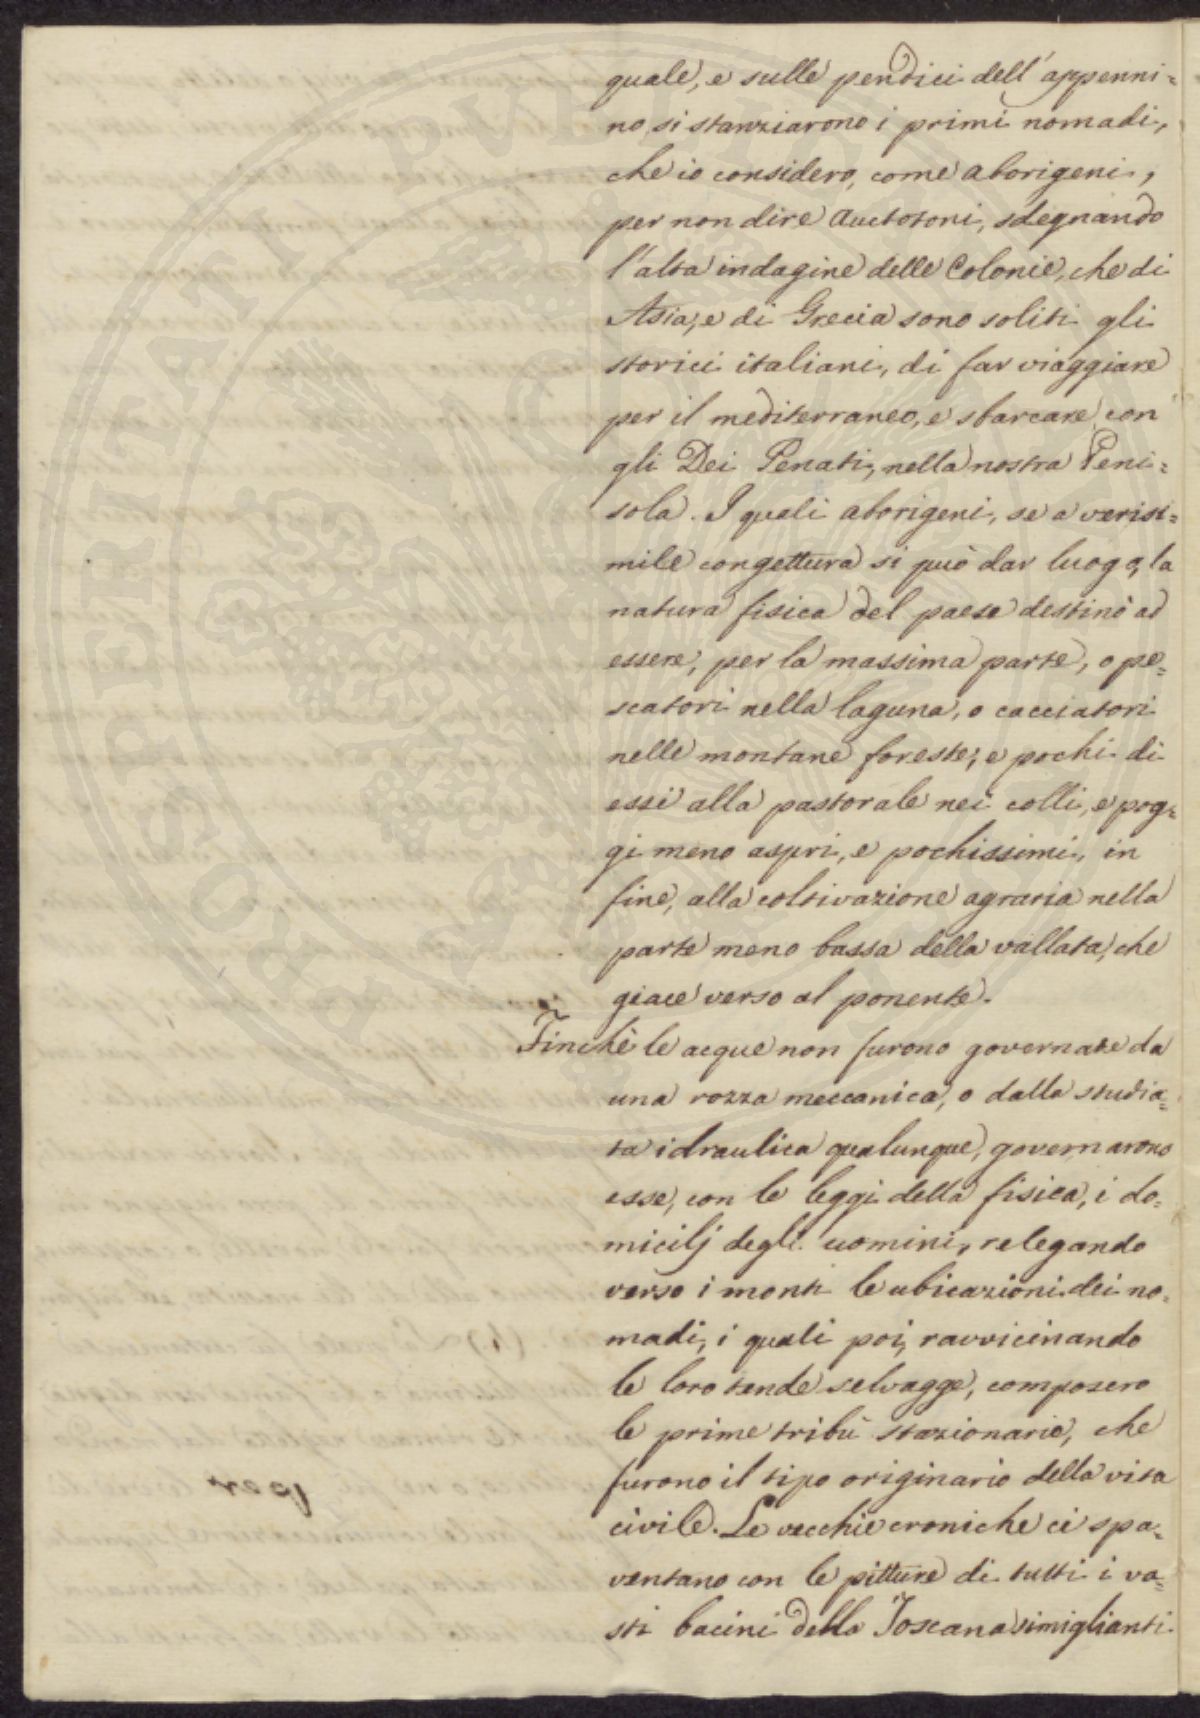 quale, e sulle pendici dell'appenni=
no, si stanziarono i primi nomadi,
che io considero, come aborigeni,
per non dire Auctotoni, sdegnando
l'alta indagine delle Colonie, che di
Asia, e di Grecia sono soliti gli
storici italiani, di far viaggiare
per il mediterraneo, e sbarcare con
gli Dei Penati, nella nostra Peni=
sola. I quali aborigeni, se a verisi=
mile congettura si può dar luogo, la
natura fisica del paese destinò ad
essere, per la massima parte, o pe=
scatori nella laguna, o cacciatori
nelle montane foreste; e pochi di
essi alla pastorale nei colli, e pog=
gi meno aspri, e pochissimi, in
fine, alla coltivazione agraria nella
parte meno bassa della vallata, che
giace verso al ponente.
Finchè le acque non furono governate da
una rozza meccanica, o dalla studia=
ta idraulica qualunque, governarono
esse, con le leggi della fisica, i do=
micilj degli uomini, relegando
verso i monti le ubicazioni dei no=
madi, i quali poi, ravvicinando
le loro tende selvagge, composero
le prime tribù stazionarie, che
furono il tipo originario della vita
civile. Le vecchie croniche ci spa=
ventano con le pitture di tutti i va=
sti bacini della Toscana simiglianti
PROSPERITATI PUBLICAE